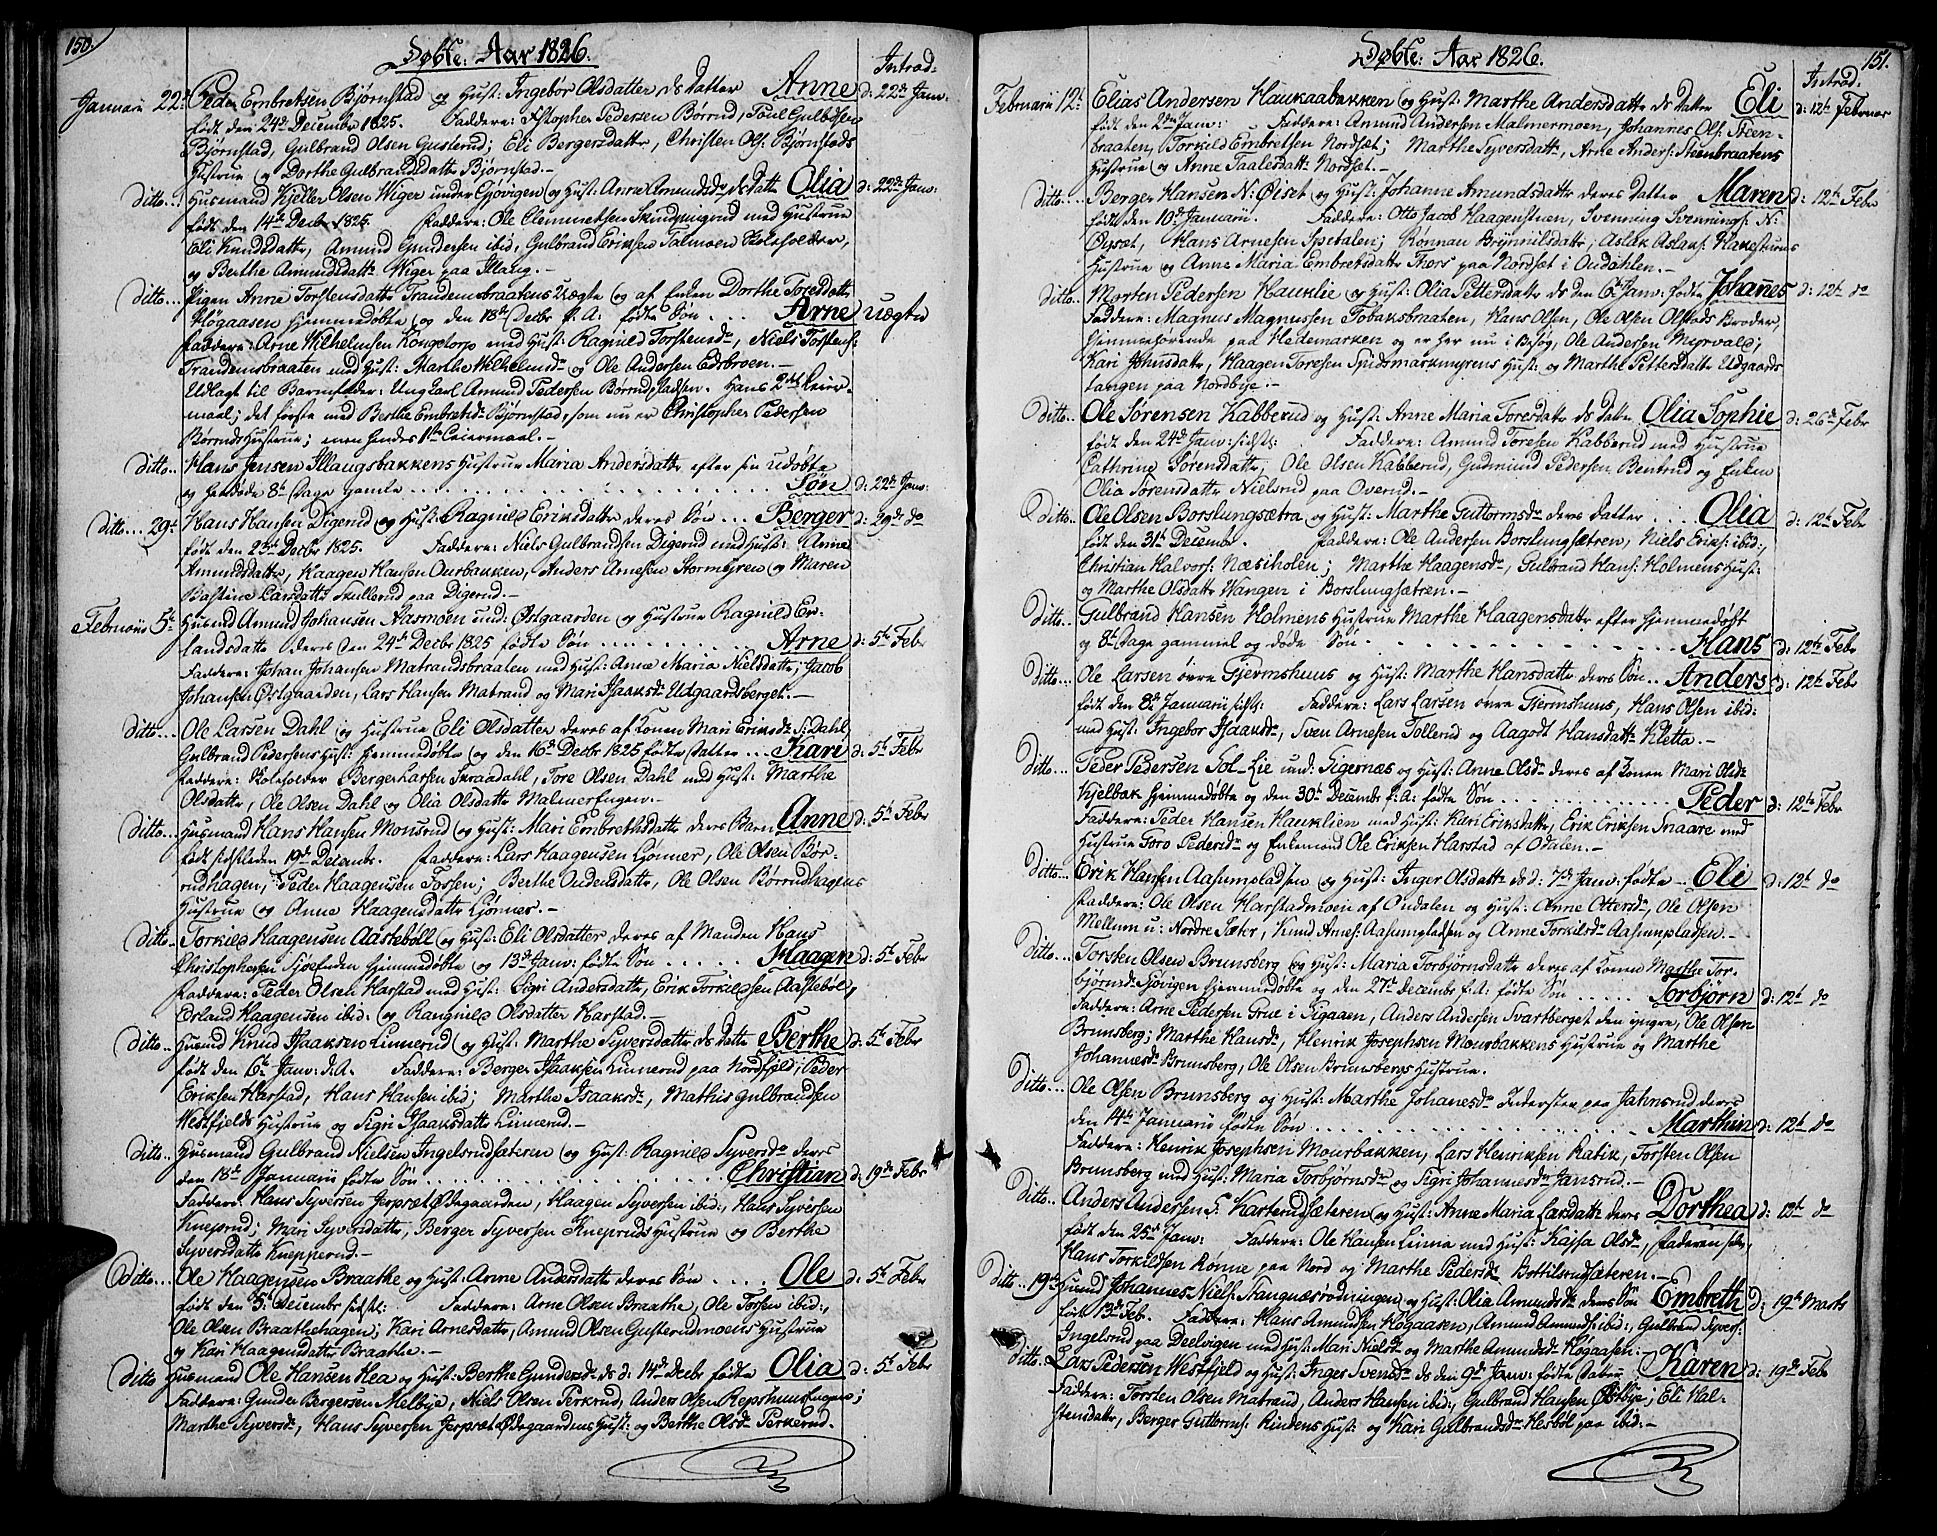 150.
Døbte. Aar 1826.
Introd:
Januari 22de Peder Embretsen Bjørnstad og Hust: Ingebor Olsdatter ds Datter Anne d: 22de Janv:
født den 24de Decembr 1825. Faddere: Christopher Pedersen Børrud, Poul Gulbdsen
Bjørnstad, Gulbrand Olsen Gusterud; Eli Bergersdattr, Christen Ols: Bjørnstads
Hustrue og Dorthe Gulbrandsdattr Bjørnstad.-
ditto..! Husmand Kjeller Olsen Wiger under Gjøvigen og Hust: Anne Amundsdr ds dattr Olia d: 22de Janv:
født den 14de Decbr 1825. Faddere: Ole Clemmetsen med Hustrue
Eli Knudsdattr, Amund Gundersen ibid, Gulbrand Eriksen Talmoen Skoleholder,
og Berthe Amundsdattr Wiger paa Illaug.-
ditto... Pigen Anne Torstensdattr Trandemsbraatens Uægte og af Enken Dorthe Toresdattr
Høgaasen hjemmedøbte og den 18de Decbr f: A: fødte Søn ... Arne Uægte
Faddere: Arne Wilhelmsen Kongetorp med Hust: Ragnild Torstensdr, Niels Torstens:
Trandemsbraaten med Hust: Marthe Wilhelmsdr og Ole Andersen Edsbroen.-
Udlagt til Barnefader: Ungkarl Amund Pedersen Børrudpladsen. Hans 2det Leier-
maal; det første med Berthe Embretsdr Bjørnstad, som nu er Christopher Pedersen
Børruds Hustrue; men hendes 1ste Leiermaal.-
ditto.. Hans Jensen Illaugsbakkens Hustrue Maria Andersdattr efter sin udøbte
og 8te Dage gamle ... Søn d: 22de Janv:
ditto...29de Hans Hansen Digerud og Hust: Ragnild Eriksdattr deres Søn ... Berger d: 29de do
født den 23de Decbr 1825. Faddere: Niels Gulbrandsen Digerud med Hust: Anne
Amundsdattr, Haagen Hansen Ourbakken, Anders Arnesen Stormyren og Maren
Larsdattr Skullerud paa Digerud.-
Februarii 5te Husmd Amund Johansen Aasmoen und: Østgaarden og Hustrue Ragnild Er-
landsdattr deres den 24de Decbr 1825 fødte Søn ... Arne d: 5te Febr
Faddere: Johan Johansen Matrandsbraaten med Hust: Anne Maria Nielsdattr; Jacob
Johansen Østgaarden, Lars Hansen Matrand og Mari Isaaksdr Udgaardsberget.-
ditto.. Ole Larsen Dahl og Hustrue Eli Olsdatter deres af Konen Mari Eriksdr S: Dahl
Gulbrand Pedersens Hust: hjemmedøbte og den 16de Decbr 1825 fødte datter ... Kari d: 5te Febr
Faddere: Skoleholder Berger Larsen Skrandahl, Tore Olsen Dahl med Hust: Marthe
Olsdattr, Ole Olsen Dahl og Olia Olsdattr Malmer Engen.-
ditto... Husmand Hans Hansen Monsrud og Hust: Mari Embrethsdattr deres Barn Anne d: 5te Febr
født sidstleden 19de Decembr. Faddere: Lars Haagensen Lønner, Ole Olsen Bør-
rudhagen, Peder Haagensen Fossen; Berthe Andersdattr, Ole Olsen Børrudhagens
Hustrue og Anne Haagensdattr Lønner.-
ditto.. Torkild Haagensen Aastebøll og Hust: Eli Olsdatter deres af Manden Hans
Christophersen Sjøenden hjemmedøbte og 13de Janv: fødte Søn ..... Haagen d: 5te Febr
Faddere: Peder Olsen Harstad med Hust: Sigri Andersdattr, Erik Torkildsen Aastebøl,
Erland Haagensen ibid: og Rangnild Olsdatter Harstad.-
ditto.. Husmd Knud Isaaksen Linnerud og Hust: Marthe Syversdattr ds Dattr Berthe d: 5te Febr
født den 6te Janv: d: A. Faddere: Berger Isaaksen Linnerud paa Nordfjeld; Peder
Eriksen Harstad, Hans Hansen ibid; Marthe Isaaksdr, Mathis Gulbrandsen
Westfjelds Hustrue og Sigri Isaaksdattr Linnerud.-
ditto.. Husmand Gulbrand Nielsen Ingelsrudsæteren og Hust: Ragnild Syversdr deres
den 18de Januarii fødte Søn ... Christian d: 19de Febr
Faddere: Hans Syversen Jerpset Ødegaarden, Haagen Syversen ibid:, Hans Syversen
Kneprud; Mari Syversdattr, Berger Syversen Knepruds Hustrue og Berthe
Syversdattr Knepperud.-
ditto... Ole Haagensen Braathe og Hust: Anne Andersdattr deres Søn .... Ole d: 5te Febr
født den 5te Decembr sidstl: Faddere: Arne Olsen Braathe, Ole Torsen ibid:,
Ole Olsen Braathehagen; Kari Arnesdattr, Amund Olsen Gusterudmoens Hustrue
og Kari Haagensdattr Braathe.-
ditto Husmand Ole Hansen Hea og Hust: Berthe Gundersdr ds d: 14de Decbr fødte Olia d: 5te Febr
Faddere: Gunder Bergersen Melbye, Niels Olsen Perkrud, Anders Olsen Repshuusengen;
Marthe Syversdr, Hans Syversen Jerpset Ødegaardens Hust: og Berthe Olsdr Perkerud.
Døbte: Aar 1826.
151.
Introd.
Februarii 12te Elias Andersen Haukaabakken og Hust: Marthe Andersdattr ds Datter Eli d: 12te Februar
født den 2den Janv: Faddere: Amund Andersen Malmermoen, Johannes Ols: Steen-
braaten, Torkild Embretsen Nordsæt; Marthe Syversdattr, Arne Anders: Steenbraatens
Hustrue og Anne Taalesdattr Nordset.-
ditto.... Berger Hansen N: Øiset og Hust: Johanne Amundsdattr deres Datter Maren d: 12te Febr
født den 10de Januarii. Faddere: Otto Jacob Haagenstuen, Svenning Svennings: N:
Øyset, Hans Arnesen Spetalen; Rønnau Brynnilsdattr, Aslak Aslaks: Hakestuens
Hustrue og Anne Maria Embretsdattr Thors paa Nordset i Oudahlen.-
ditto... Morten Pedersen Hauklie og Hust: Olia Pettersdattr ds den 6te Janv: fødte Johanes d: 12te do
Faddere: Magnus Magnussen Tobaksbraaten, Hans Olsen, Ole Olsen Olstads Broder,
hjemmehørende paa Hedemarken og er her nu i Besøg, Ole Andersen Myrvold;
Kari Johnsdattr, Haagen Toresen Spidsmarkmyrens Hust: og Marthe Pettersdattr Udgaards
tangen paa Nordbye.-
ditto.. Ole Sørensen Kabberud og Hust: Anne Maria Toresdattr ds Datter Olia Sophie d: 26de Febr
født den 24de Janv: sidstl: Faddere: Amund Toresen Kabberud med Hustrue
Cathrine Sørensdattr, Ole Olsen Kabberud, Gudmund Pedersen Bentrud og Enken
Olia Sørensdattr Nielsrud paa Overud.-
ditto.. Ole Olsen Borslungsætra og Hust: Marthe Guttormsdr deres Datter .... Olia d: 12te Febr
født den 31te Decembr. Faddere: Ole Andersen Borslungsætren, Niels Eriks: ibid:,
Christian Halvors: Næsiholen; Marthe Haagensdr, Gulbrand Hans: Holmens Hust:
og Marthe Olsdattr Wangen i Borslungsætren.-
ditto Gulbrand Hansen Holmens Hustrue Marthe Haagensdattr efter hjemmedøbt
og 8te Dage gammel og døde Søn ... Hans d: 12te Febr
ditto... Ole Larsen øvre Gjermshuus og Hust: Marthe Hansdattr deres Søn.. Anders d: 12te Febr
født den 8de Januarii sidstl: Faddere: Lars Larsen øvre Gjermshuus, Hans Olsen ibid:
med Hust: Ingebor Isaaksdr, Sven Arnesen Tollerud og Aagodt Hansdattr Kletta.-
ditto... Peder Pedersen Sol-Lie und: Sigernæs og Hust: Anne Olsdr deres af Konen Mari Olsdr
Kjelbak hjemmedøbte og den 30te Decembr f: A: fødte Søn ... Peder d: 12te Febr
Faddere: Peder Hansen Hauklien med Hust: Kari Eriksdattr, Erik Eriksen Snaare med
Hustrue Goro Pedersdr og Enkemand Ole Eriksen Harstad af Odalen.-
ditto... Erik Hansen Aasumpladsen og Hust: Inger Olsdattr ds d: 7de Janv: fødte - Eli d: 12te do
Faddere: Ole Olsen Harstadmoen af Oudalen og Hust: Anne Ottersdr, Ole Olsen
Mellum u: Nordre Sæter, Knud Arnes: Aasumpladsen og Anne Torkilsdr Aasumpladsen.-
ditto.. Torsten Olsen Brunsberg og Hust: Maria Torbjørnsdattr deres af Konen Marthe Tor-
bjørnsdr Gjøvigen hjemmedøbte og den 27de Decembr f: A: fødte Søn ..... Torbjørn d: 12te do
Faddere: Arne Pedersen Grue i Sigaaen, Anders Andersen Svartberget den yngre, Ole Olsen
Brunsberg; Marthe Hansdr, Henrik Josephsen Mourbakkens Hustrue og Marthe
Johannesdr Brunsberg, Ole Olsen Brunsbergs Hustrue.
ditto... Ole Olsen Brunsberg og Hust: Marthe Johanesdr Inderster paa Jahnsrud deres
den 14de Januarii fødte Søn ... Marthin d: 12te do
Faddere: Henrik Josephsen Mourbakken, Lars Henriksen Ratik, Torsten Olsen
Brunsberg med Hust: Maria Torbjørnsdr og Sigri Johannesdr Jansrud.-
ditto... Anders Andersen S. Karterudsæteren og Hust: Anne Maria Larsdattr deres Dorthea d: 12te do
født den 25de Janv: Faddere: Ole Hansen Linna med Hust: Kajsa Olsdr, Faderen selv,
Hans Torkildsen Rønne paa Nord og Marthe Pedersdr Bottilsrudsæteren.-
ditto.. 19de Husmd Johannes Niels: Strangnæsrødningen og Hust: Olia Amundsdr deres Søn Embreth d: 19de Marts
født 13de Feb. Faddere: Hans Amundsen Høgaasen, Amund Amunds: ibid:, Gulbrand Syvers:
Ingelsrud paa Deelvigen med Hust: Mari Nielsdr og Marthe Amundsdr Høgaasen:-
ditto.. Lars Pedersen Westfjeld og Hust: Inger Svensdr ds den 9de Janv: fødte Datter Karen d: 19de Feb
Faddere: Torsten Olsen Matrand, Anders Hansen ibid:, Gulbrand Hansen Østbye; Eli Hal-
stensdattr, Berger Guttorms: Rindens Hust: og Kari Gulbrandsdr Hesbøl paa ibid:-